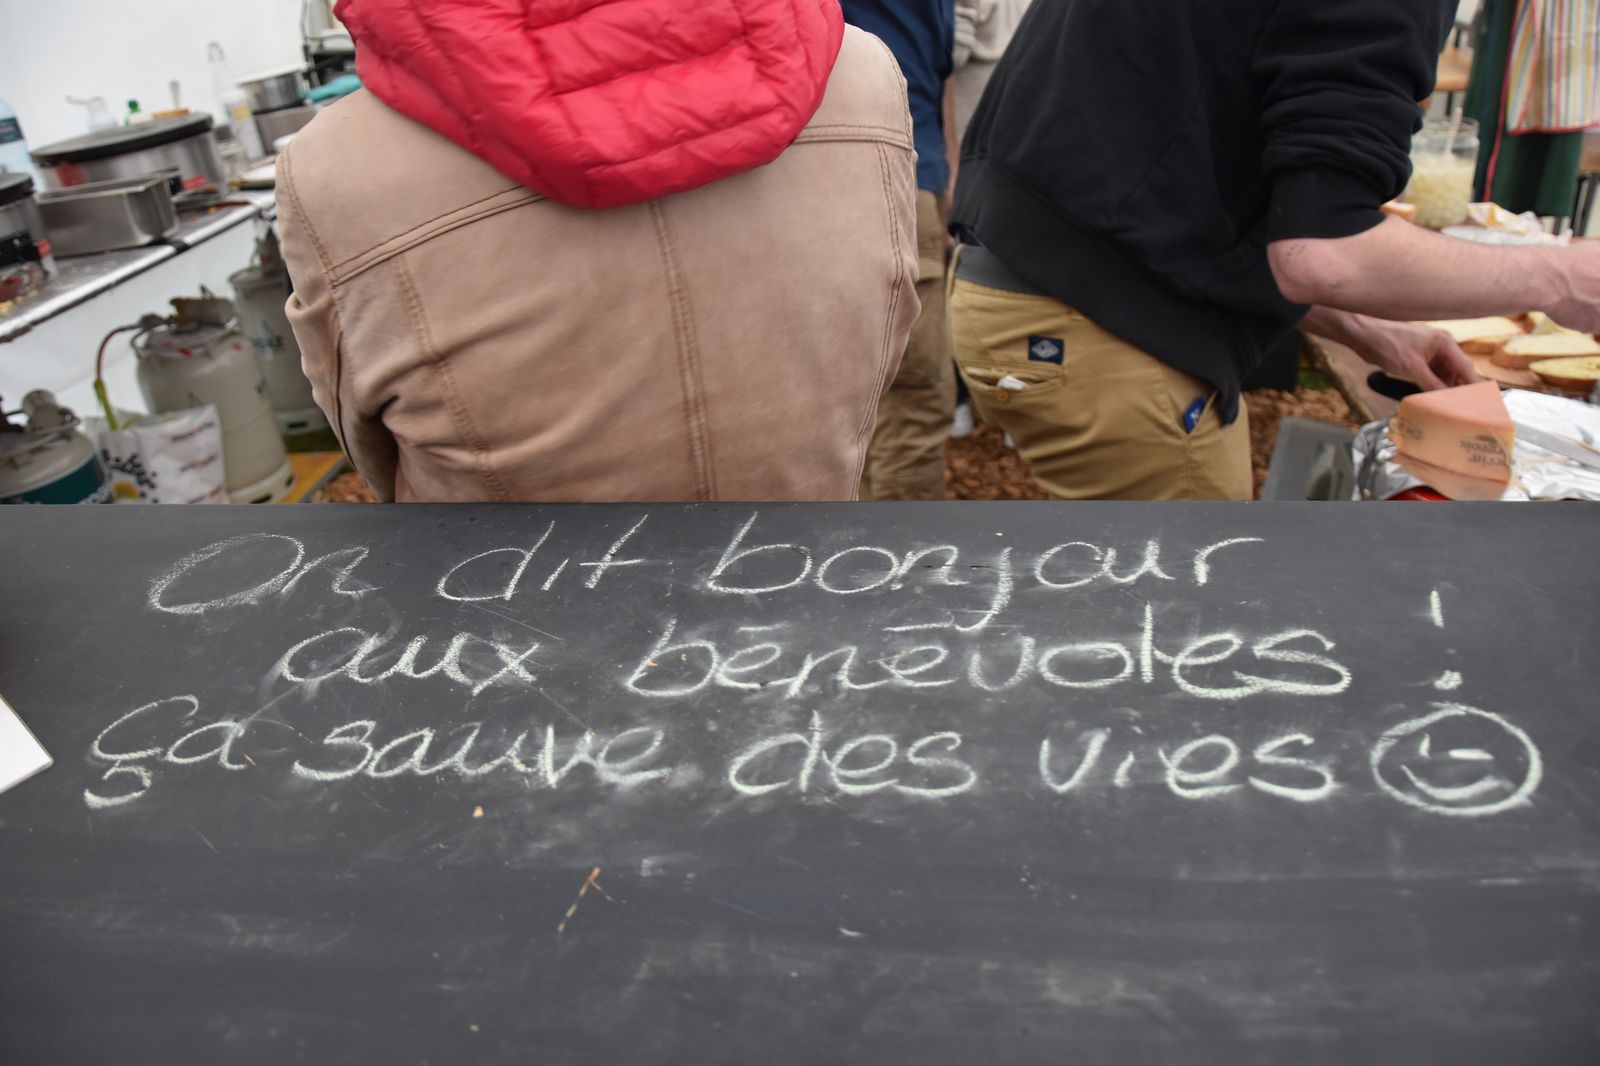 On dit bonjour
aux bénévoles !
Ça sauve des vies